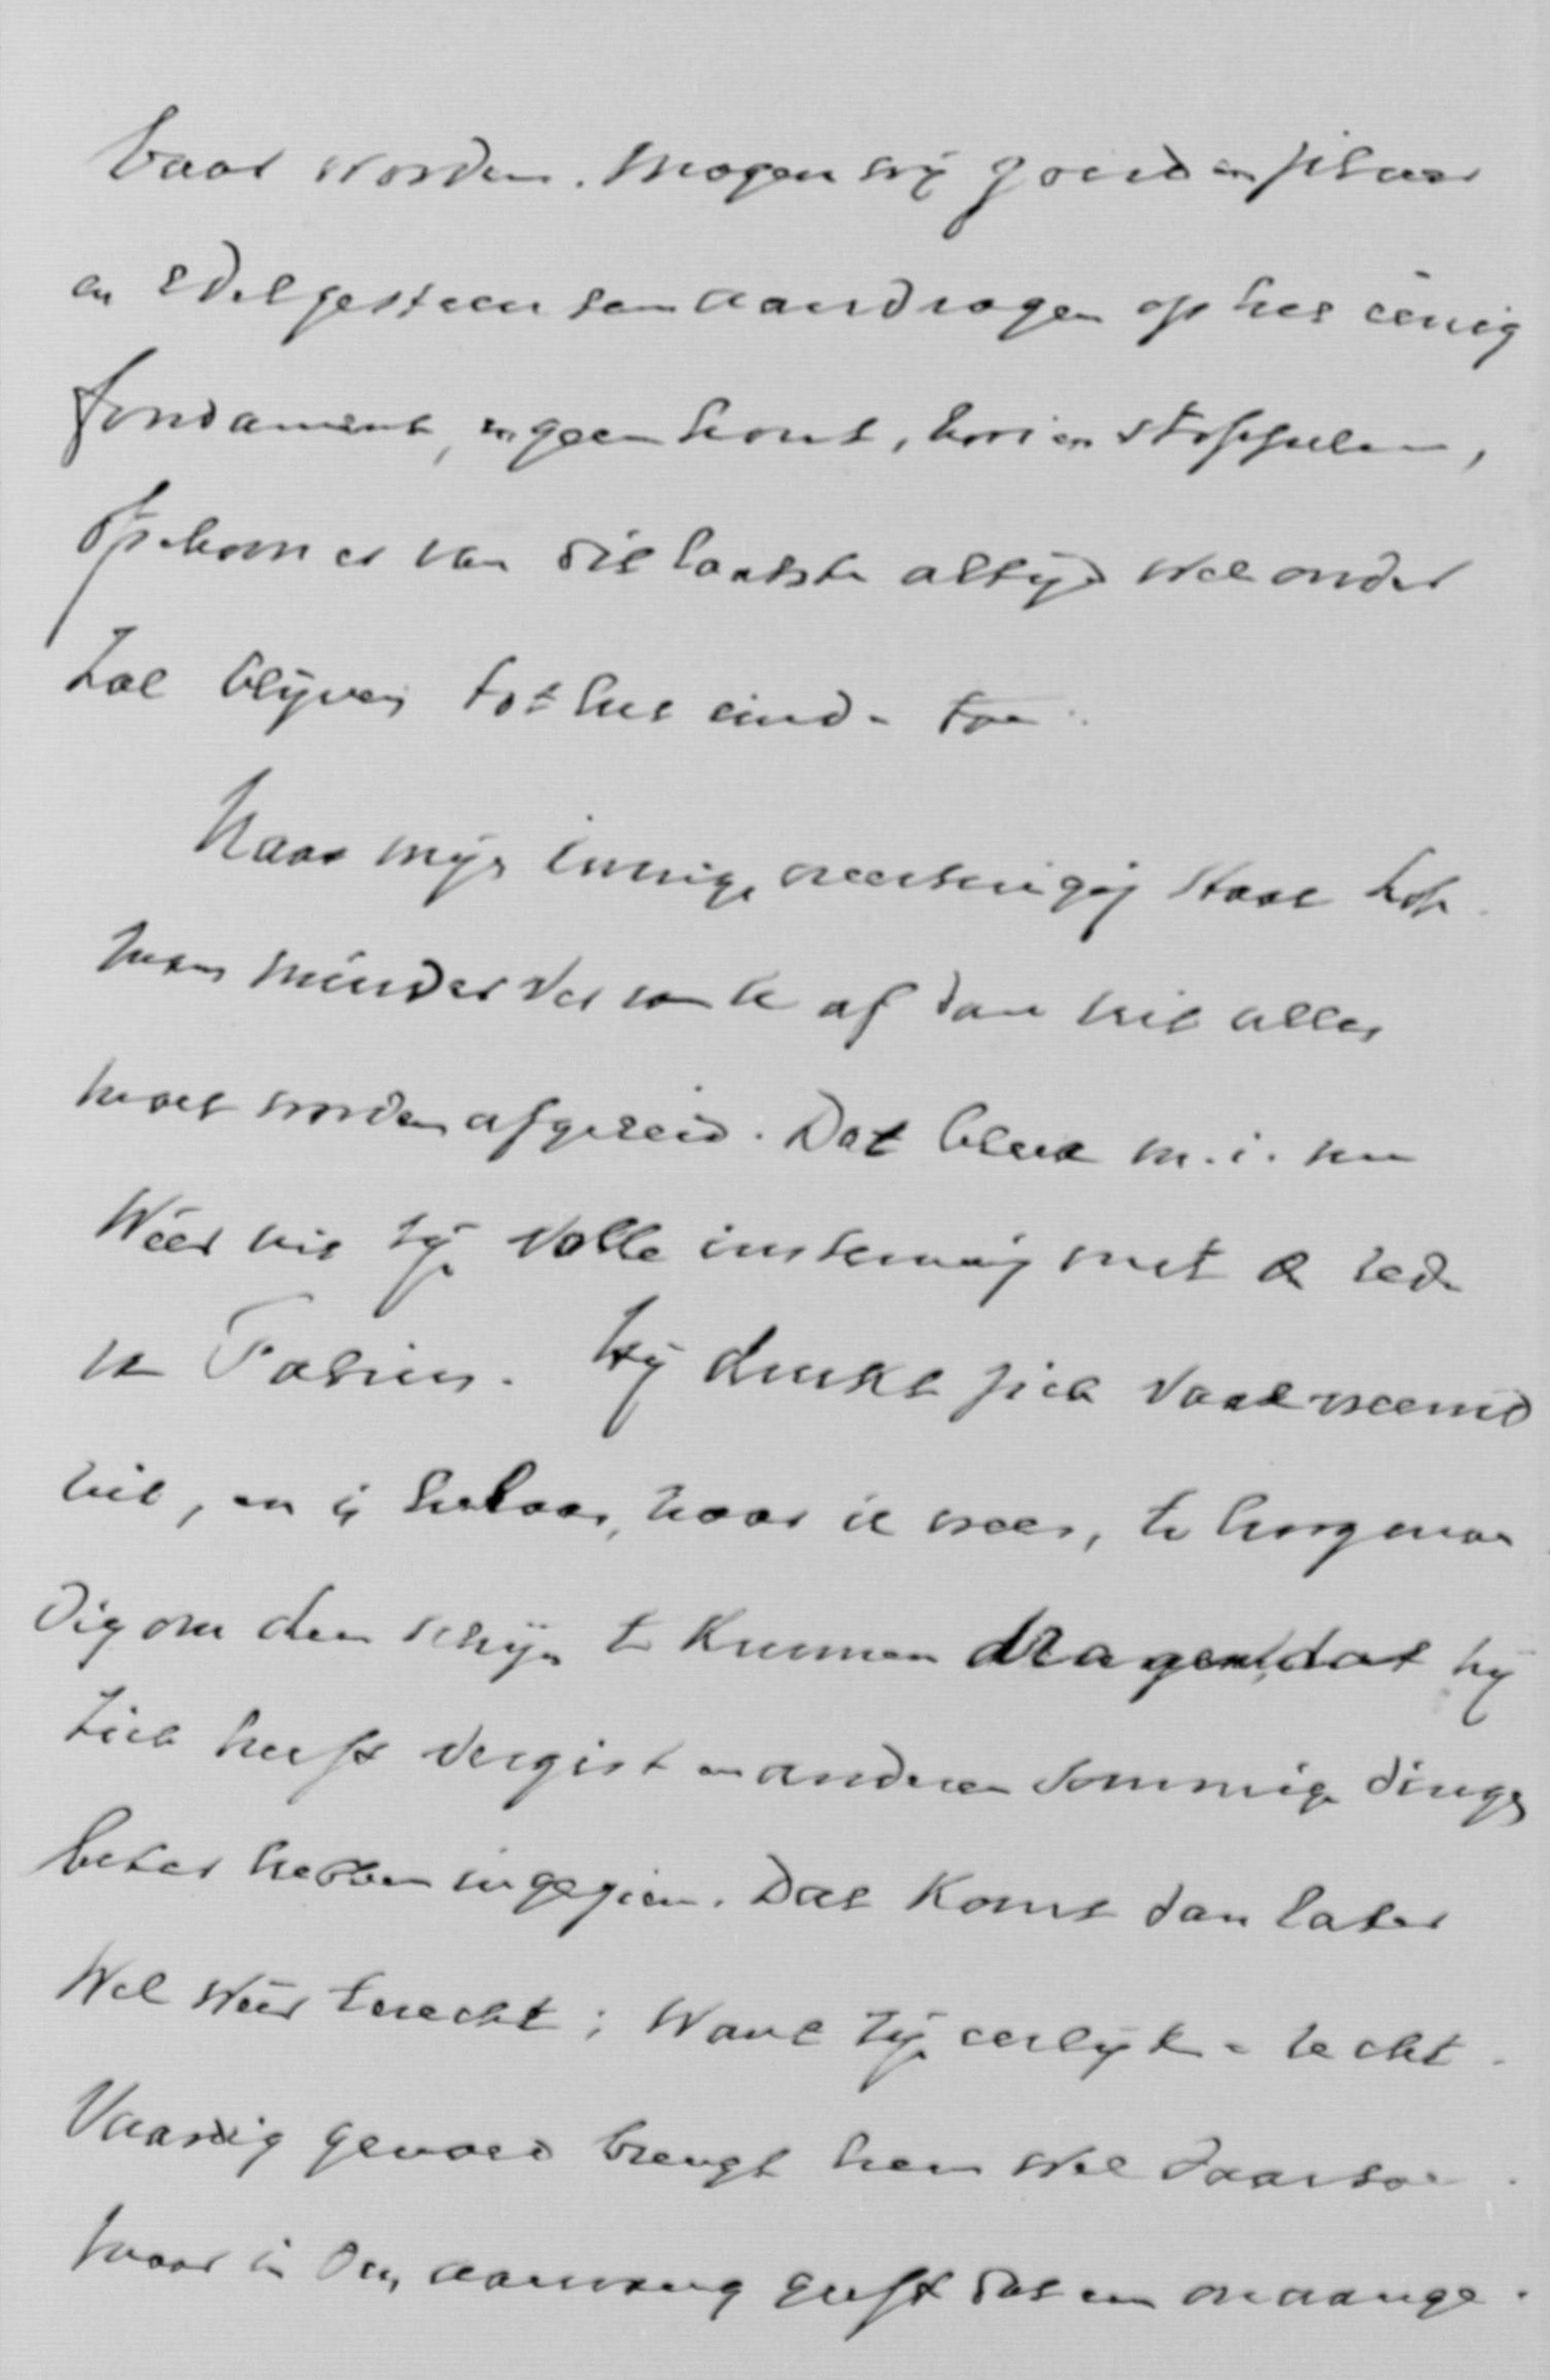 baar worden. Mogen wij goud en zilver
en edelgesteenten aandragen op het eenig
fondament, en geen hout, hooi en stoppelen,
ofschoon er van dit laatste altijd wel onder
zal blijven tot het einde toe.
Naar mijn innige overtuiging staat Loh-
man minder ver van U af dan uit alles
moet worden afgeleid. Dat bleek m.i. nu
weer uit zijn volle instemming met de rede
v. Fabius. Hij drukt zich vaak vreemd
uit, en is helaas, naar ik vrees, te hoogmoe-
dig om den schijn te kunnen dragen, dat hij
zich heeft vergist en anderen sommige dingen
beter hebben ingezien. Dat komt dan later
wel weer terecht; want zijn eerlijk en recht-
vaardig gemoed brengt hem wel daartoe.
Maar in den aanvang geeft dat een onaange-